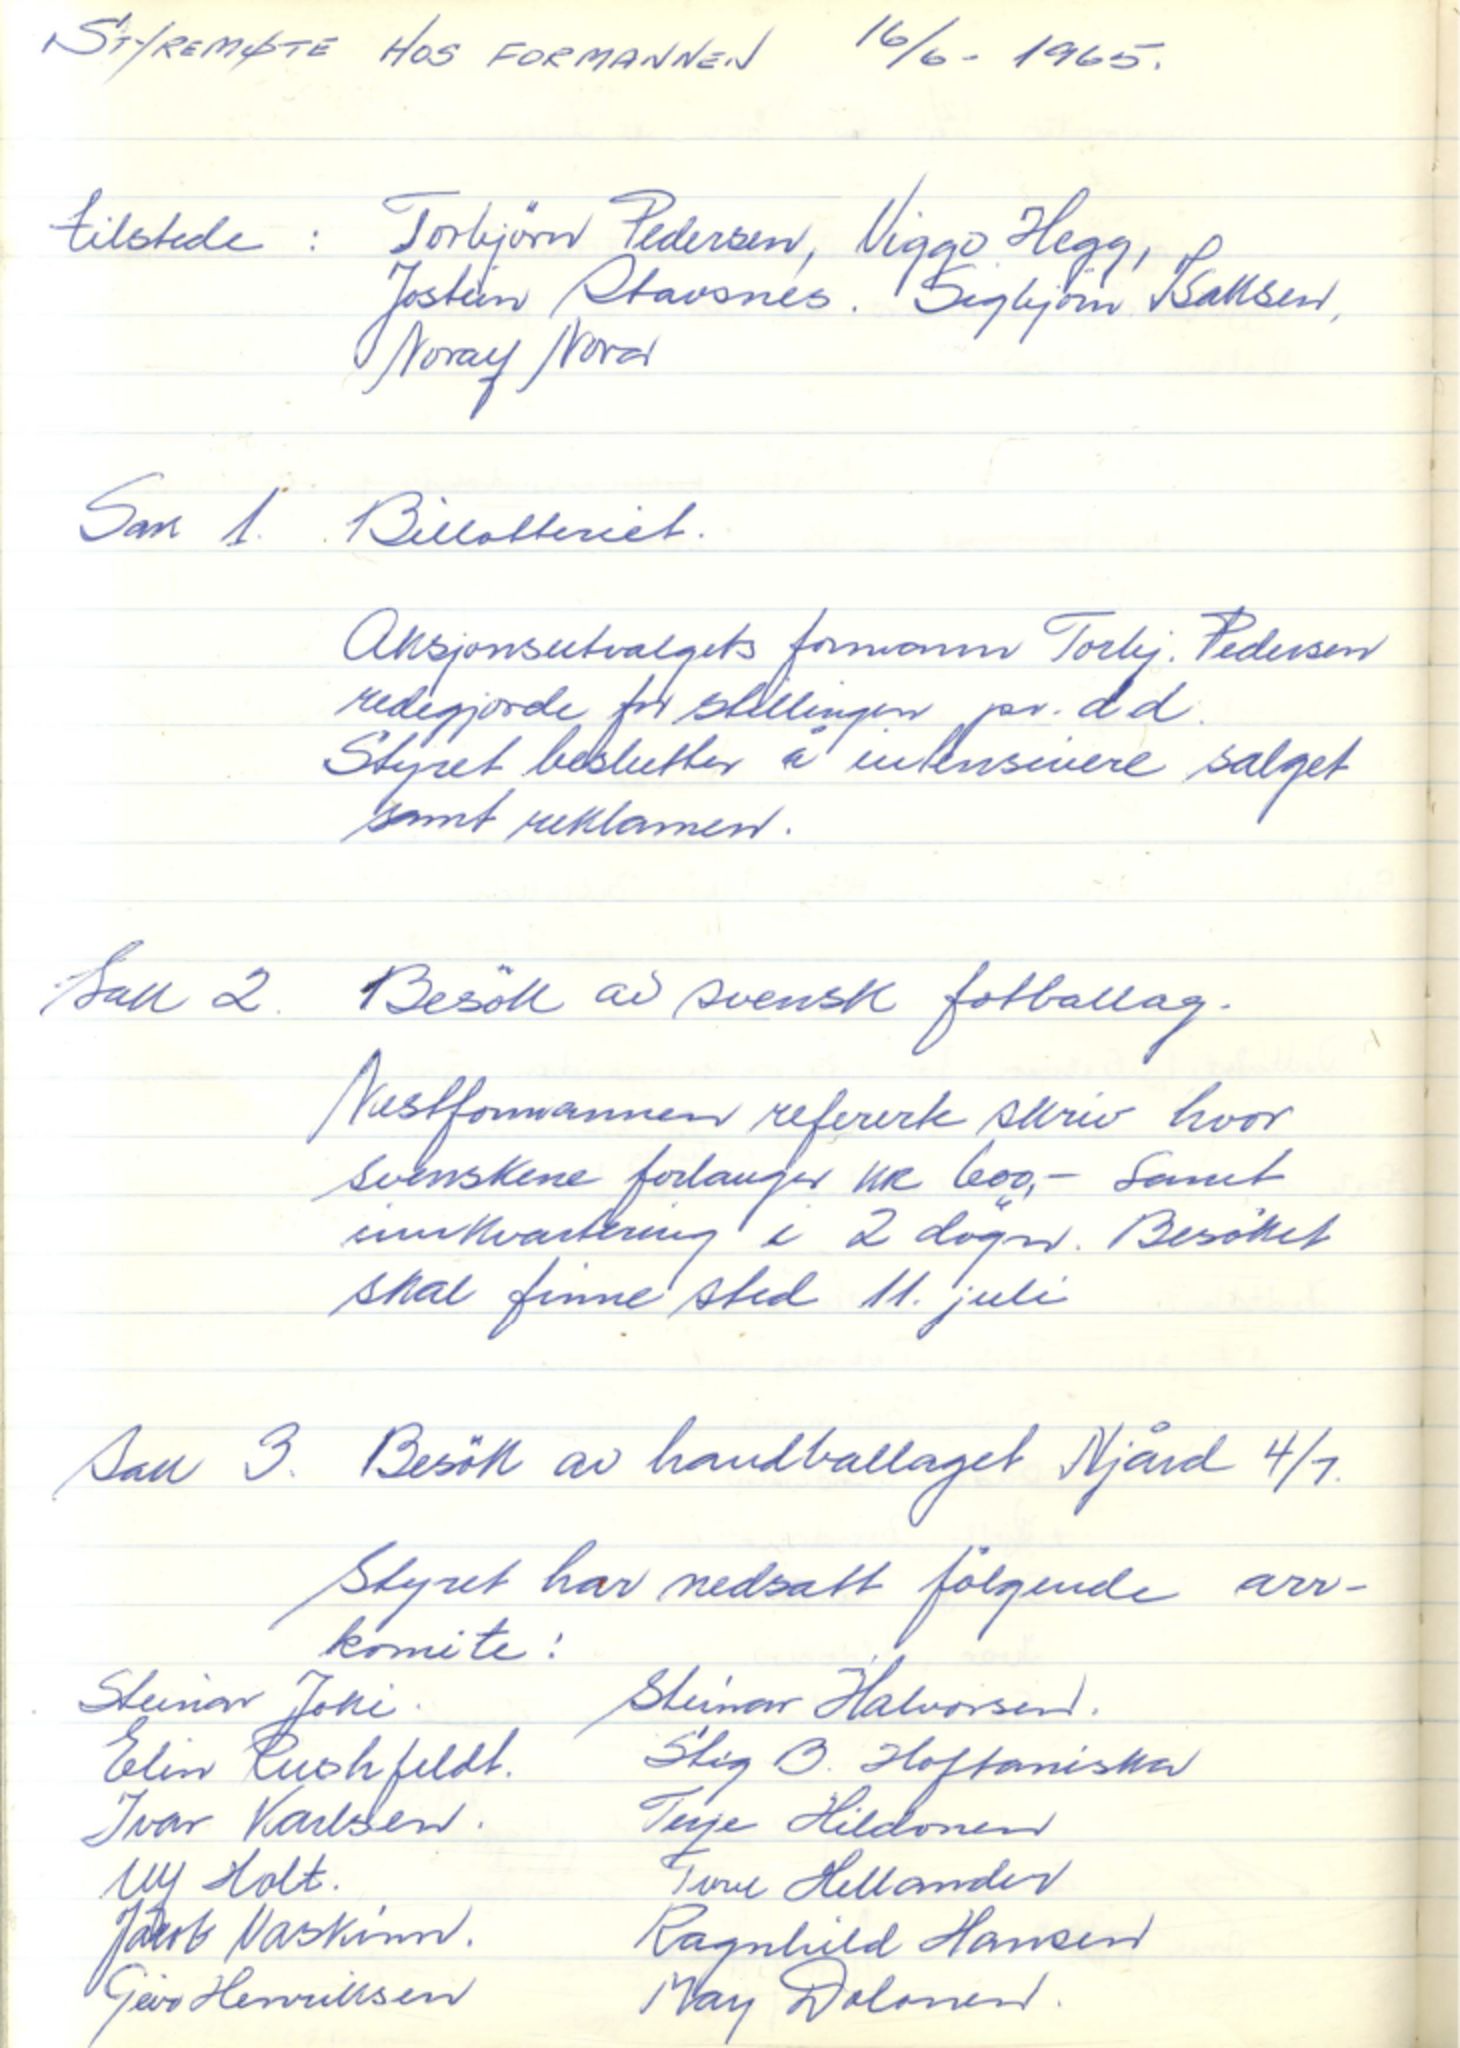 STYREMØTE HOS FORMANNEN 16/6- 1965.
tilstede : Torbjörn Pedersen, Viggo Hegg,
Jostein Stavsnes. Sigbjörn Isaksen,
Noralf Nora
Sak 1. Billotteriet.
Aksjonsutvalgets formann Torbj. Pedersen
redegjorde for stillingen pr. d d.
Styret beslutter å intensivere salget
samt reklamen.
Sak 2. Besök av svensk fotballag.
Nestformannen refererte skriv hvor
svenskene forlanger kr 600,- samt
innkvartering i 2 dögn. Besöket
skal finne sted 11. juli
Sak 3. Besök av handballaget Njård 4/7.
Styret har nedsatt fölgende arr-
komite:
Steinar Joki. Steinar Halvorsen.
Elin Rushfeldt. Stig B. Hoftaniska
Ivar Karlsen. Terje Hildonen
Ulf Holt. Tove Hellander
Jakob Vaskinn. Ragnhild Hansen
Geir Henriksen May Dolonen.